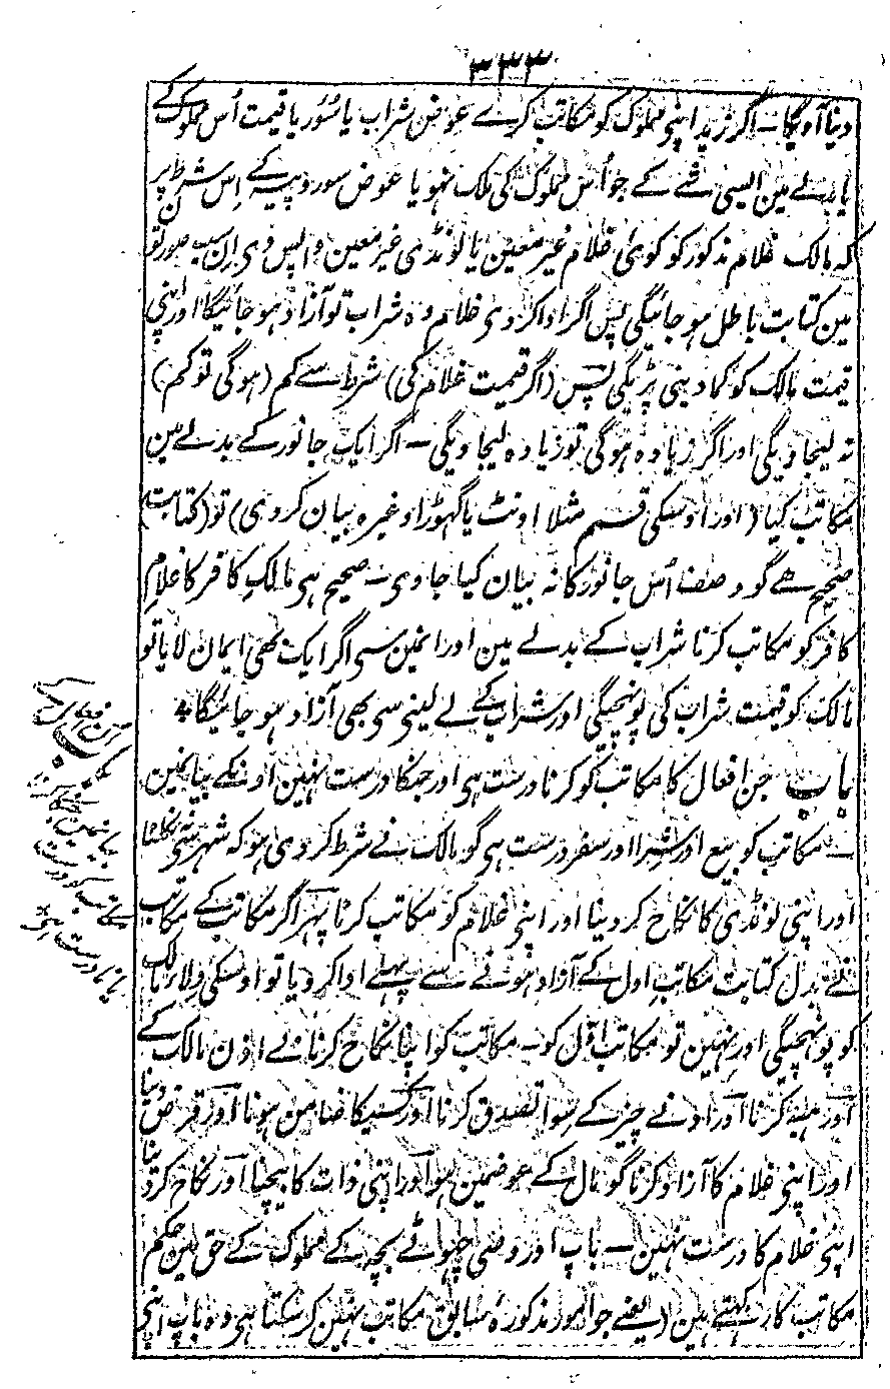 ۳۳۳
دینا آویگا ـ اگر زید اپنی مملوک کو مکاتب کرے عوض شراب یا سُؤر یا قیمت اُس مملوک کے
یا بدلے مین ایسی شے کے جو اُس مملوک کی ملک نہو یا عوض سو روپیہ کے اِس شرط پر
کہ مالک غلام مذکور کو کوئی غلام غیر معین یا لونڈی غیر معین واپس دی اِن سب صورتون
مین کتابت باطل ہو جائیگی پس اگر ادا کر دی غلام وہ شراب تو آزاد ہو جائیگا اور اپنی
قیمت مالک کو کما دینی پڑیگی پس (اگر قیمت غلام کی) شرط سے کم (ہو گی تو کم)
نہ لیجاویگی اور اگر زیادہ ہوگی تو زیادہ لیجاویگی ـ اگر ایک جانور کے بدلے مین
مکاتب کیا (اور اوسکی قسم مثلا اونٹ یا گھوڑا وغیرہ بیان کر دی) تو (کتابت)
صحیح ہے گو وصف اُس جانور کا نہ بیان کیا جاوی ـ صحیح ہی مالک کافر کا غلام
کافر کو مکاتب کرنا شراب کے بدلے مین اور انمین سی اگر ایک بھی ایمان لایا تو
مالک کو قیمت شراب کی پونہچیگی اور شراب کے لے لینی سی بھی آزاد ہو جائیگا
باب جن افعال کا مکاتب کو کرنا درست ہی اور جنکا درست نہین اونکے بیانمین
ـ مکاتب کو بیع اور شرا اور سفر درست ہی گو مالک نے شرط کر دی ہو کہ شہر سی نہ نکلنا
اور اپنی لونڈی کا نکاح کر دینا اور اپنی غلام کو مکاتب کرنا پہر اگر مکاتب کے مکاتب
نے بدل کتابت مکاتب اول کے آزاد ہونے سے پہلے ادا کر دیا تو اوسکی ولا مالک
کو پونہچیگی اور نہین تو مکاتب اوّل کو ـ مکاتب کو اپنا نکاح کرنا بے اذن مالک کے
اور ہبہ کرنا اور ادنے چیز کے سوا تصدق کرنا اور کسیکا ضامن ہونا اور قرض دینا
اور اپنی غلام کا آزاد کرنا گو مال کے عوضمین ہو اور اپنی ذات کا بیچنا اور نکاح کر دینا
اپنی غلام کا درست نہین ـ باپ اور وصی چھوٹے بچہ کے مملوک کے حق مین حکم
مکاتب کا رکہتے ہین (یعنے جو امور مذکورۂ سابق مکاتب نہین کر سکتا ہی وہ باپ اپنی
باب